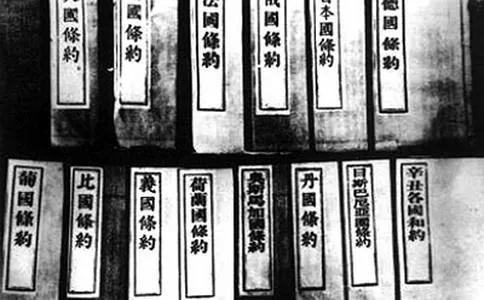 德國條約
日本國條約
俄國條約
法國條約
國條約
國條約
辛丑各國和約
日斯巴尼亞國條約
丹國條約
奧斯馬加國條約
荷蘭國條約
義國條約
比國條約
葡國條約